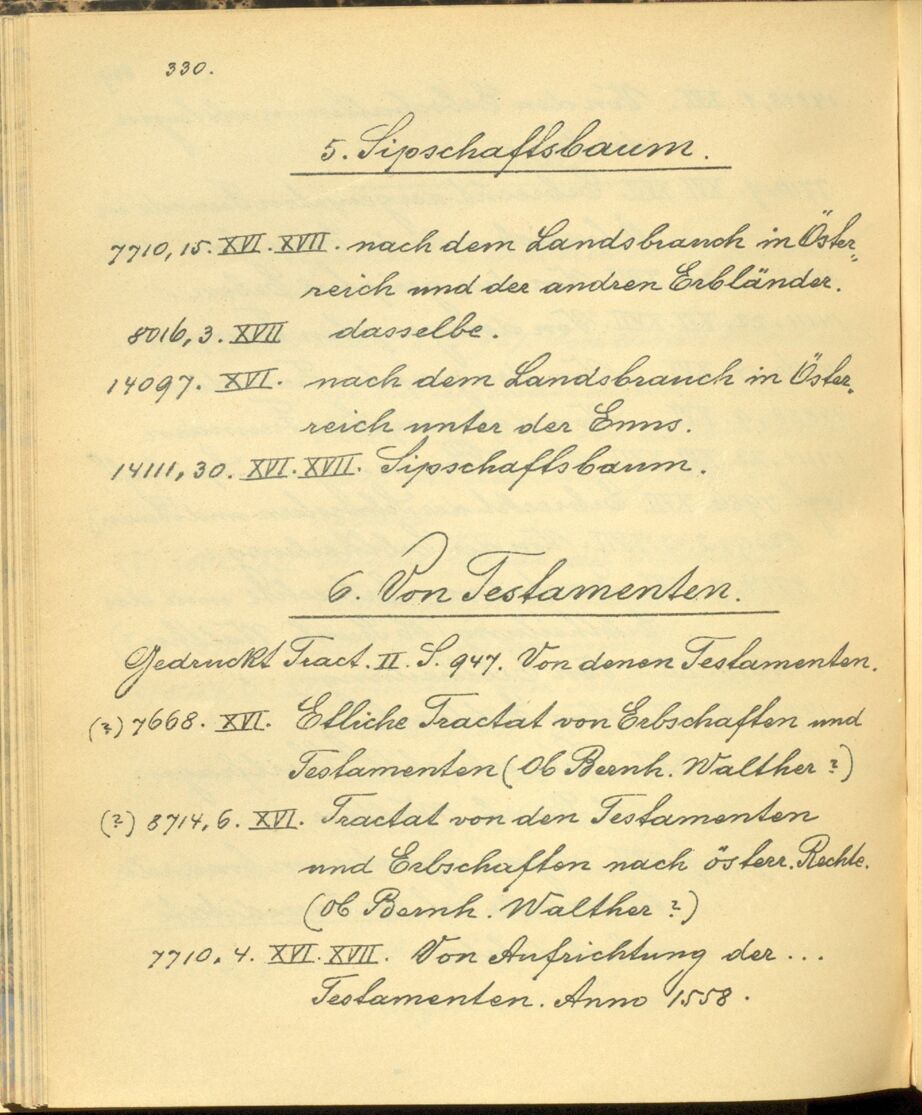 330.
5. Sipschaftsbaum.
7710, 15. XVI. XVII. nach dem Landsbrauch in Öster„
reich und der andren Erbländer.
8016, 3. XVII dasselbe.
14097. XVI. nach dem Landsbrauch in Öster„
reich unter der Enns.
14111, 30. XVI. XVII. Sipschaftsbaum.
6. Von Testamenten.
Gedruckt Tract. II. S. 947. Von denen Testamenten.
(?) 7668. XVI. Etliche Tractat von Erbschaften und
Testamenten (Ob Bernh. Walther?)
(?) 8714, 6. XVI. Tractat von den Testamenten
und Erbschaften nach österr. Rechte.
(Ob Bernh. Walther?)
7710, 4. XVI. XVII. Von Aufrichtung der ...
Testamenten. Anno 1558.